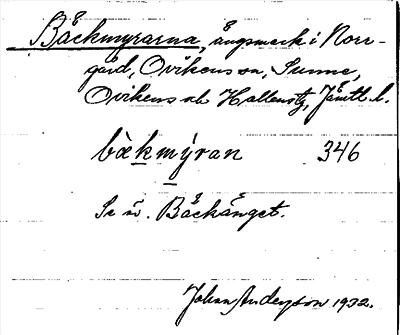 Bäckmyrarna, ängsmark i Norr-
gård, Ovikens sn, Sunne,
Ovikens och Hallens tg, Jämtl. l.
bækmýran 346
Se ä. Bäckänget.
Johan Anderson 1932.